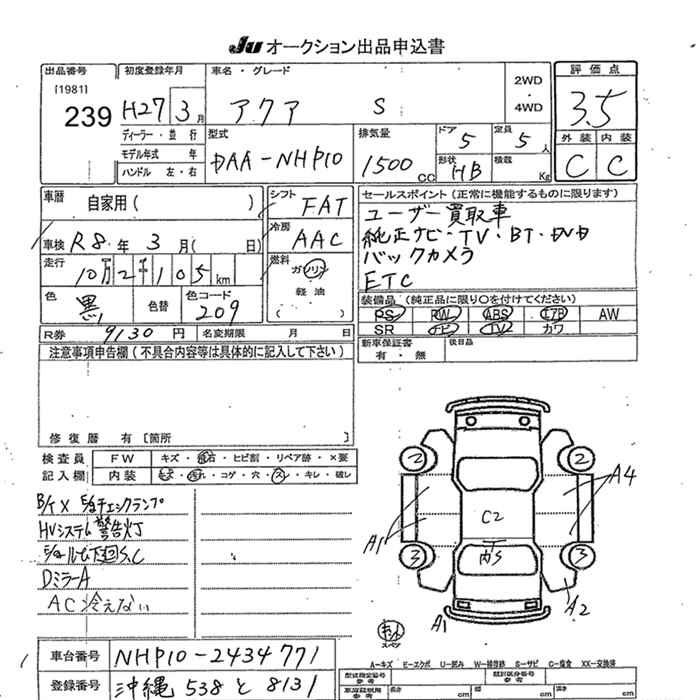 JU オークション出品申込書
出品番号 初度登録年月 車名・グレード 2WD・4WD 評価点
[1981]
239 H27 3月 アクア S 3.5
ディーラー・並行 型式 排気量 ドア 定員 外装 内装
モデル年式 年 DAA-NHP10 1500cc 5 5人 C C
ハンドル 左・右 形状 HB 積載 Kg
車歴 自家用( ) シフト FAT セールスポイント (正常に機能するものに限ります)
車検 R8年 3月( 日) 冷房 AAC ユーザー買取車
走行 10万2千105km 燃料 ガソリン 純正ナビ・TV・BT・DVD
軽油 バックカメラ
色 黒 色替 色コード 209 ( ) ETC
装備品 (純正品に限り○を付けてください)
R券 9130円 名変期限 月 日 PS PW ABS エアB AW
SR ナビ TV カワ
注意事項申告欄(不具合内容等は具体的に記入して下さい) 新車保証書 有・無 後日品
修復歴 有 [箇所 ]
検査員 FW キズ・飛石・ヒビ割・リペア跡・×要
記入欄 内装 キズ・汚れ・コゲ・穴・スレ・キレ・破レ
2 2
A4
A1
C2
3 3
内S
A2
A1
チェックランプ
HVシステム警告灯
下廻S.C
DミラーA
AC冷えない
車台番号 NHP10-2434771
登録番号 沖縄 538 と 8131
A−キズ E−エクボ U−凹み W−補修跡 S−サビ C−腐食 XX−交換済
型式指定番号 類別区分番号
参考 長さ cm 幅 cm 高さ cm